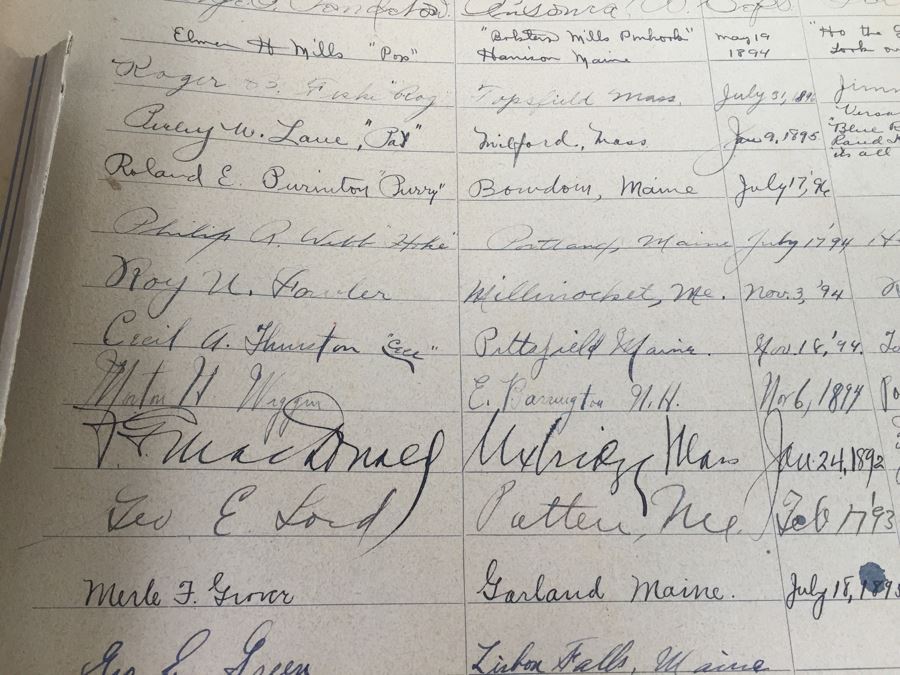 Ansonia,
Elmer H Mills "Pop" "Bolsters Mills Pinhook" Harrison Maine May 19 1894
Roger S. Fiske "Rog" Topsfield Mass. July 31, 189
Perley W. Lane, "Pat" Milford, Mass Jan 9, 1895 "Blue
Roland E. Purinton "Purry" Bowdoin, Maine July 17, '96
Philip R. Webb "Hoke" Portland, Maine July 17 '94
Roy U. Fowler Millinocket, Me. Nov. 3, '94
Cecil A. Thurston "Cece" Pittsfield Maine. Nov. 18, '94.
Morton H. Wiggin E. Barrington N.H. Nov 6, 1894
F. G. MacDonald Uxbridge Mass Jan. 24, 1892
Geo E Lord Patten, Me. Feb 17 '93
Merle F. Grover Garland Maine. July 18, 1895
Geo E. Green Lisbon Falls, Maine